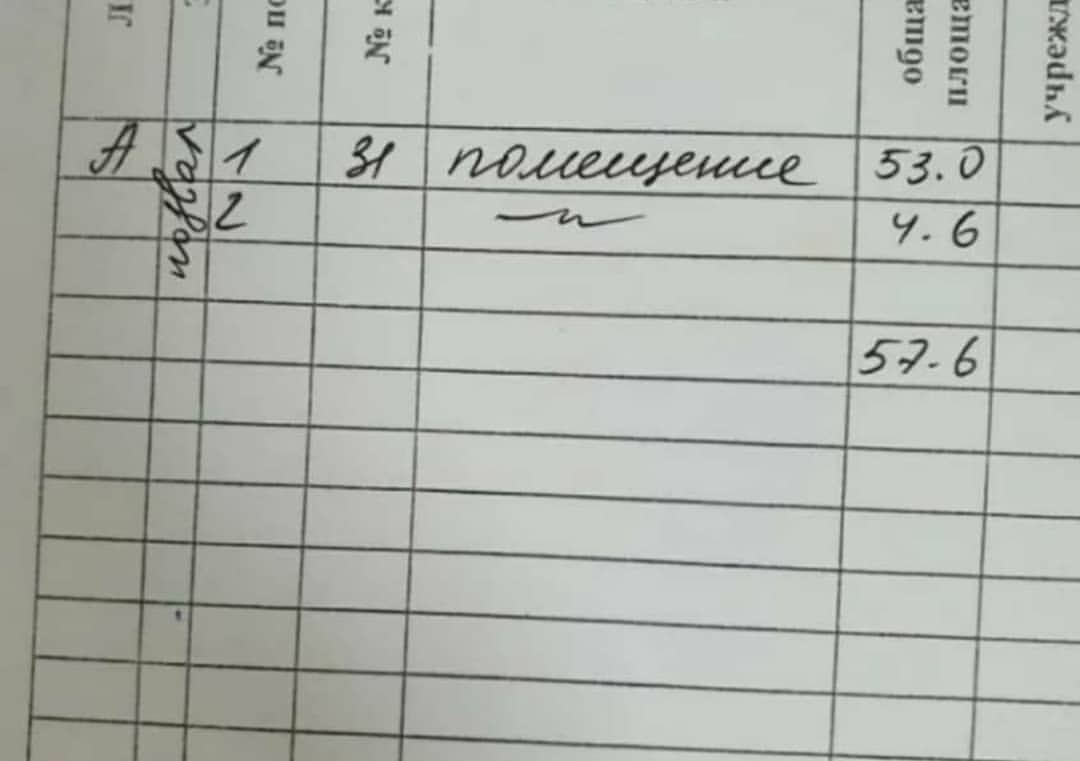 Л
№ по
№ к
обща
площа
учрежд
А подвал 1 31 помещение 53.0
2 —〃— 4.6
57.6